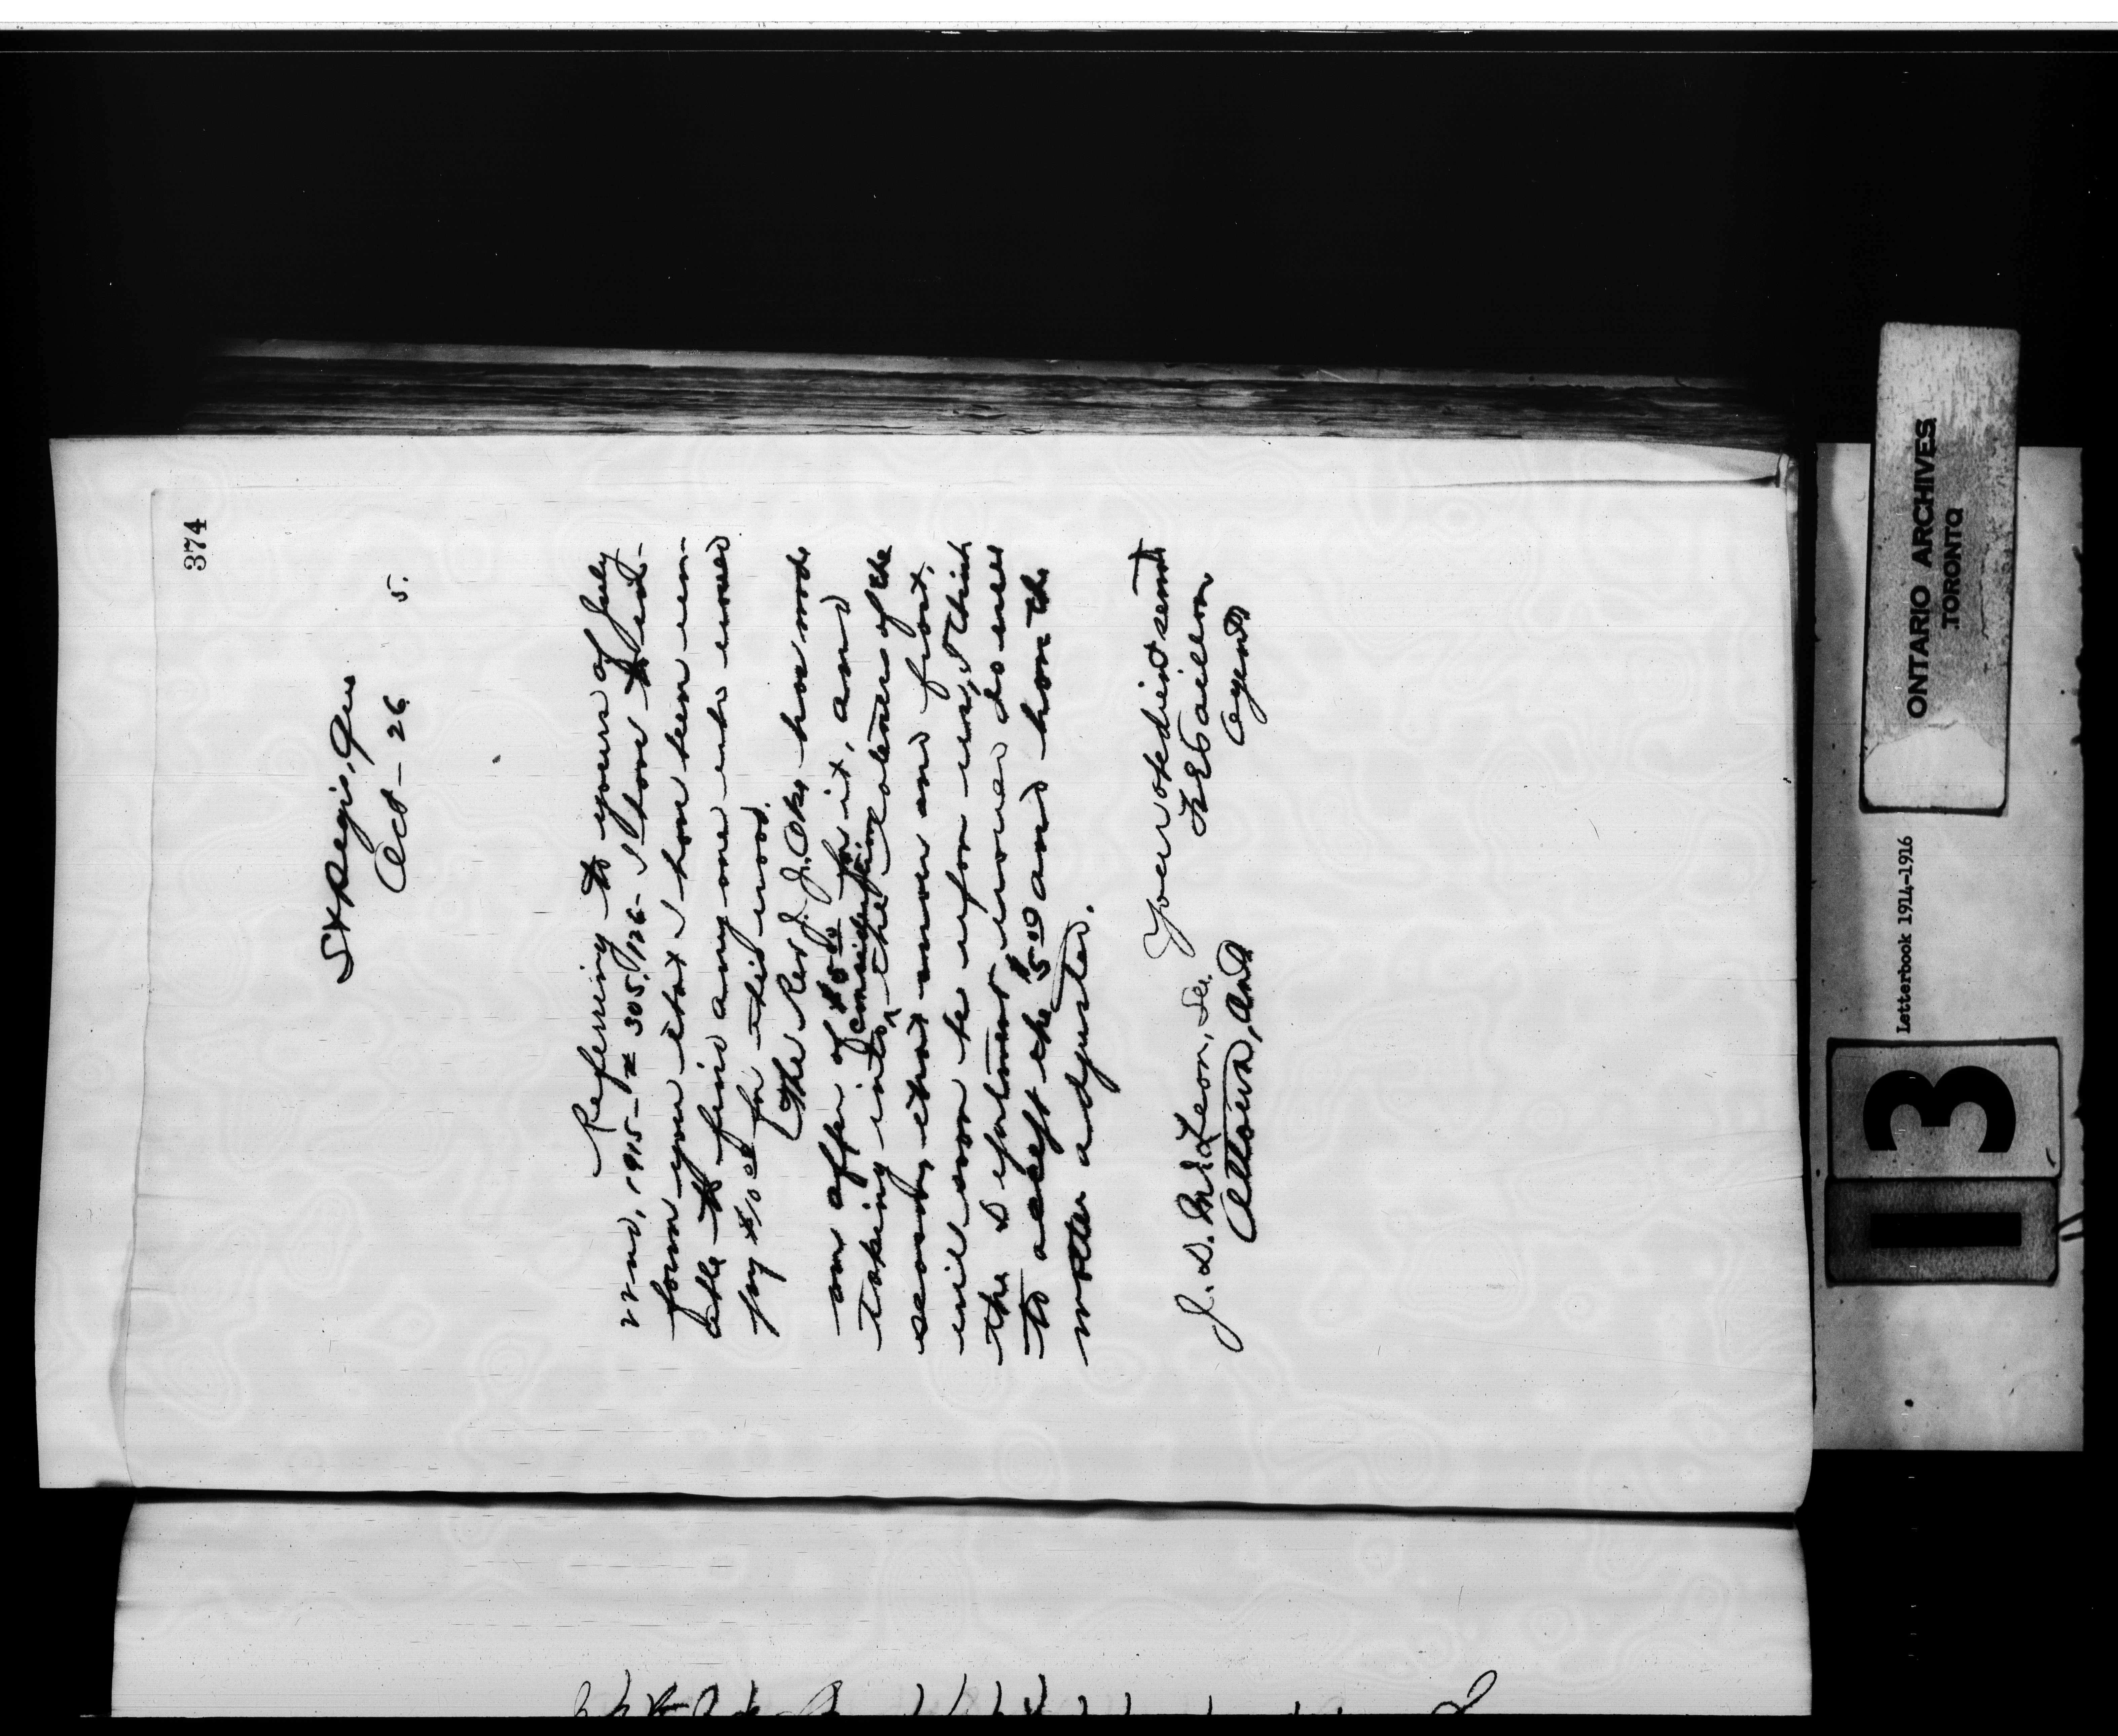 374
St Regis, Que
Oct - 26 5.
Referring to yours of July
22nd, 1915 - # 305,126 - I have to in-
form you that I have been un-
able to find any one who would
pay $10.00 for this wood.
The Rev J. J. Oke has made
an offer of $5.00 for it, and
taking into consideration the lateness of the
season, that snow and frost,
will soon be upon us, I think
the Department would do well
to accept the $5.00 and have the
matter adjusted.
Your obedient servant
F E Taillon
Agent
J. D. McLean, Sec.
Ottawa, Ont
ONTARIO ARCHIVES
TORONTO
Letterbook 1914-1916
13